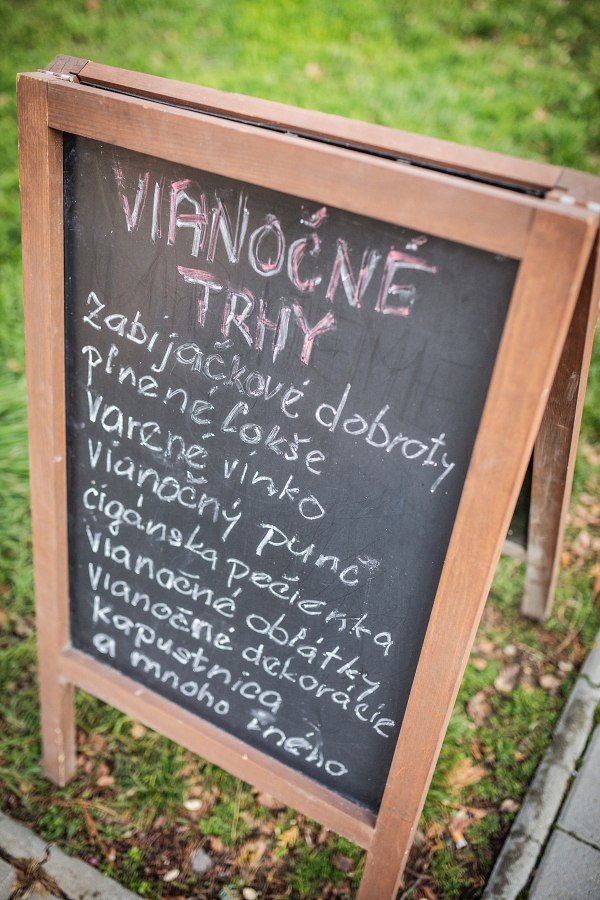 VIANOČNÉ
TRHY
zabíjačkové dobroty
plnené lokše
varené vínko
vianočný punč
cigánska pečienka
vianočné oblátky
vianočné dekorácie
kapustnica
a mnoho iného